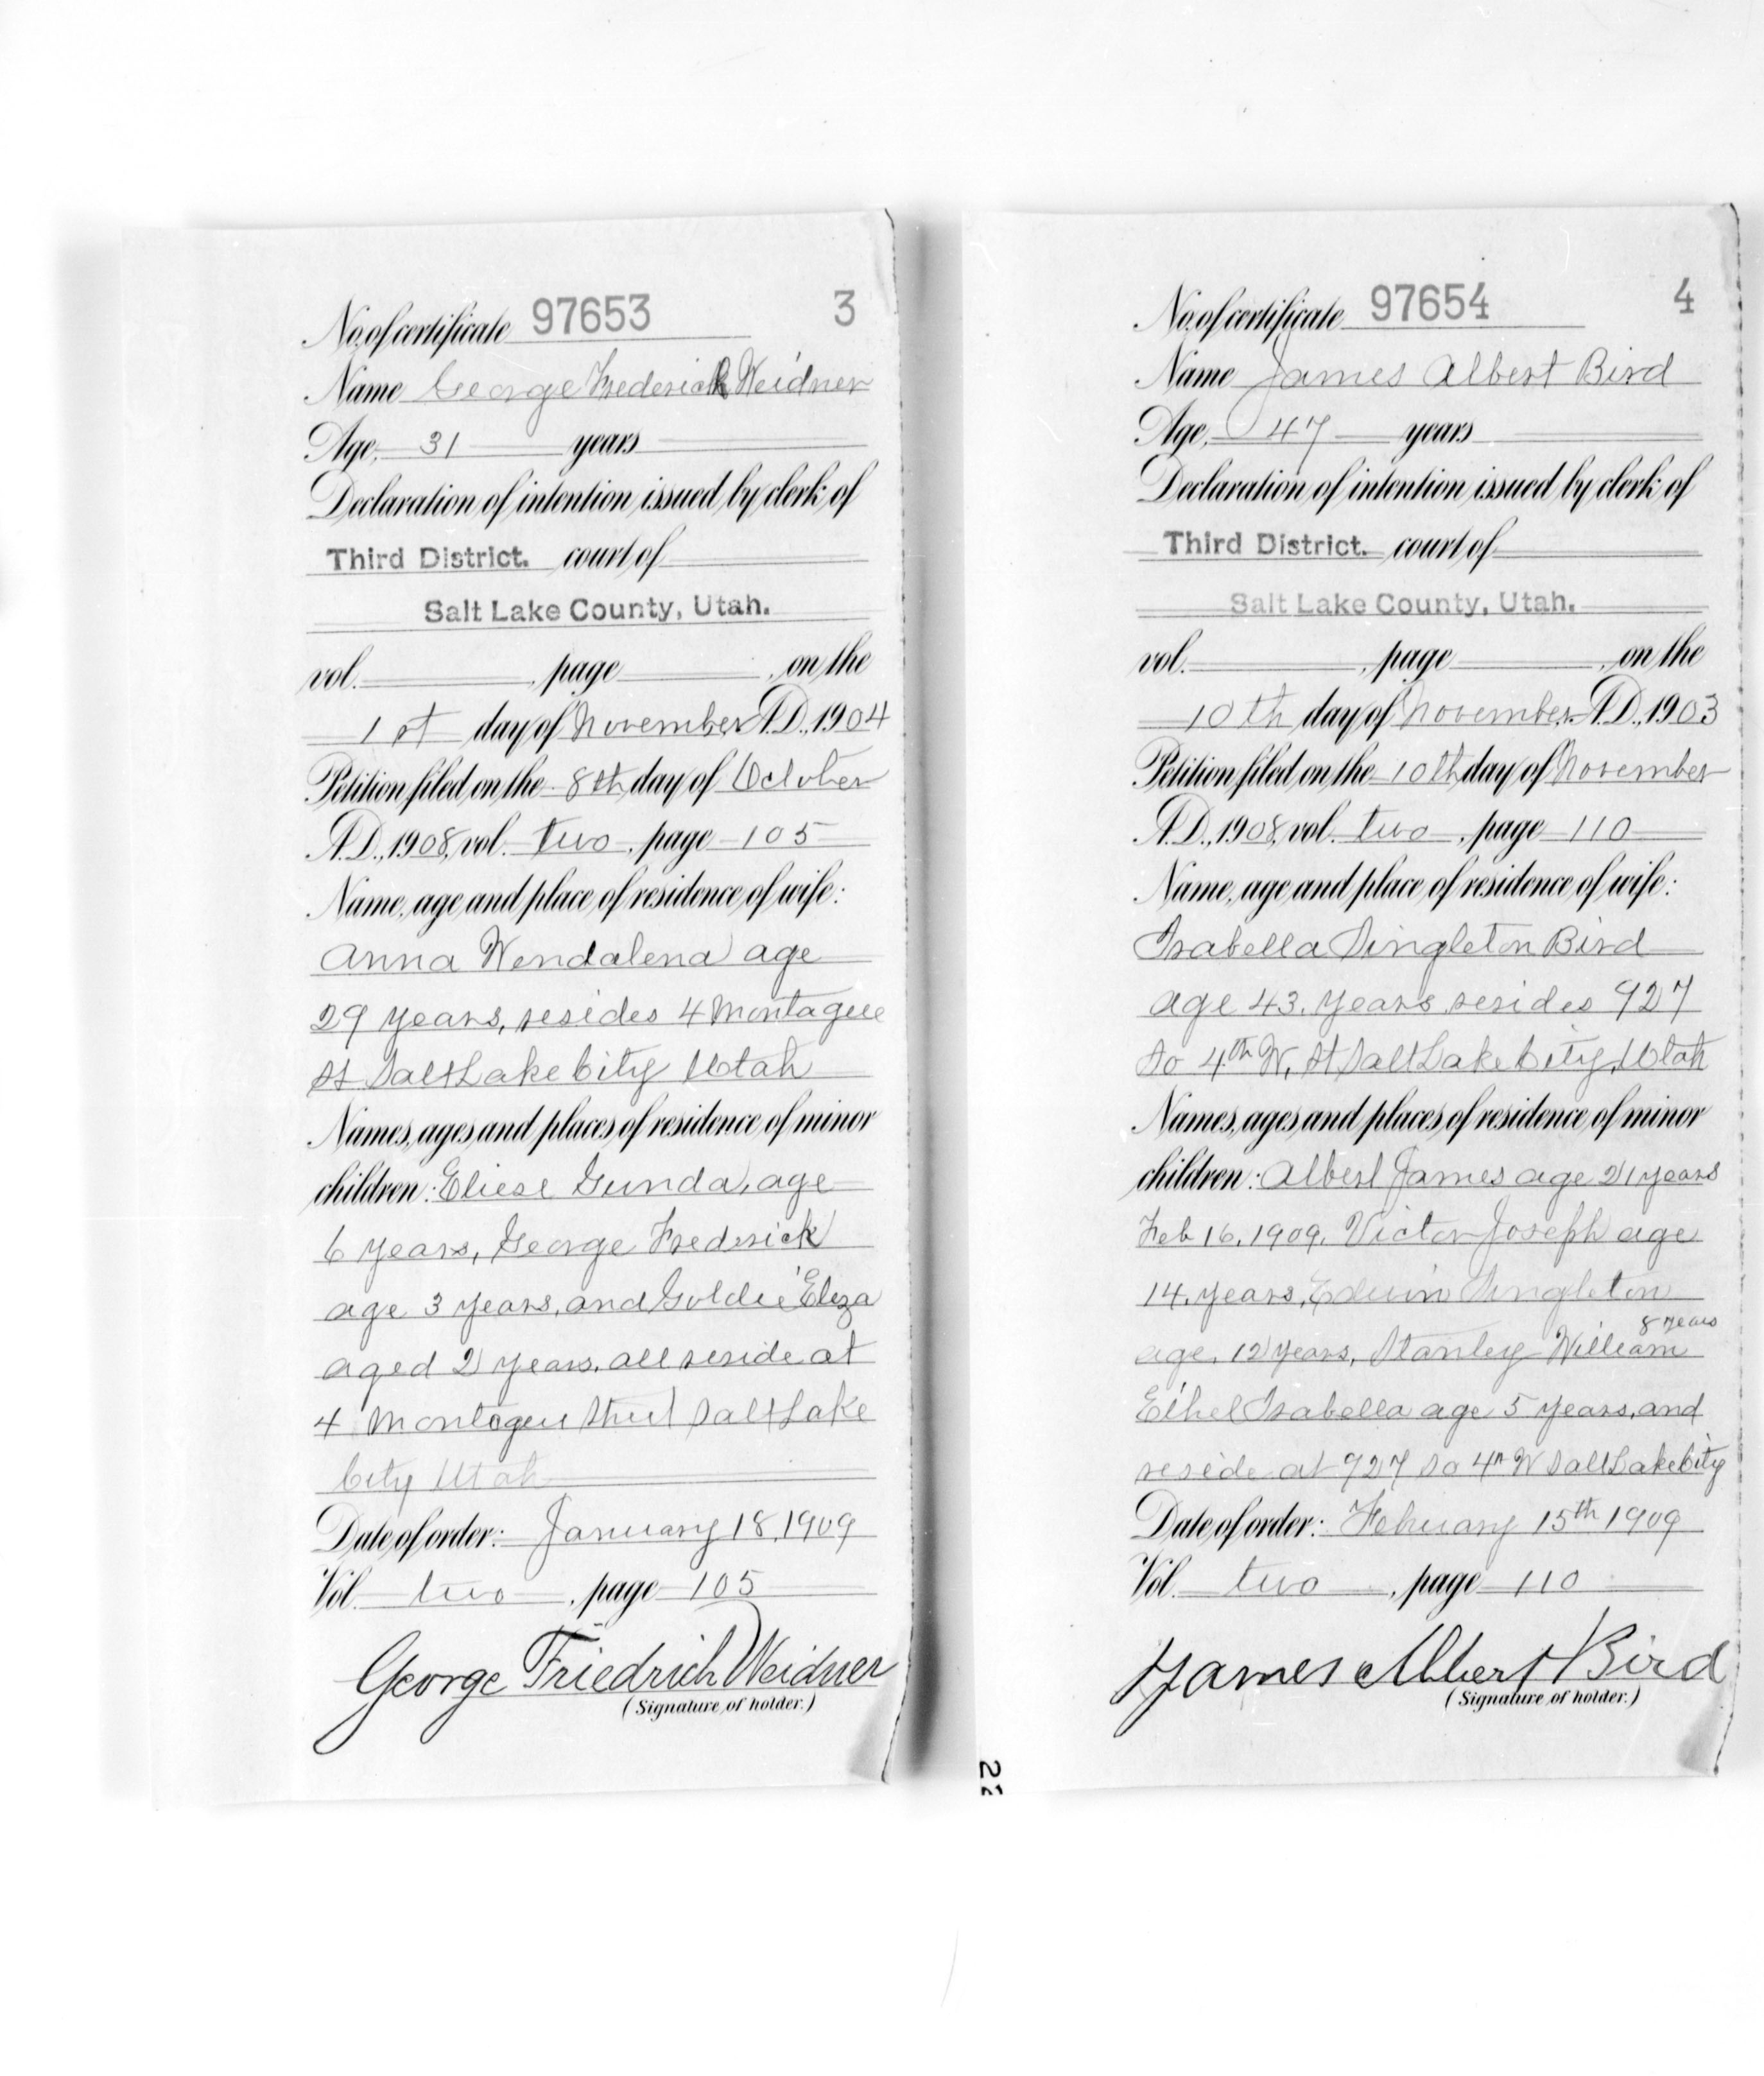 No. of certificate 97653 3
Name George Frederick Weidner
Age, 31 years
Declaration of intention issued by clerk of
Third District. court of
Salt Lake County, Utah.
vol. , page , on the
1st day of November A.D., 1904
Petition filed on the 8th day of October
A.D., 1908, vol. two, page 105
Name, age and place of residence of wife:
Anna Wendalena age
29 years, resides 4 Montague
St Salt Lake City Utah
Names, ages and places of residence of minor
children: Eliese Gunda, age
6 years, George Frederick
age 3 years, and Goldie Eliza
aged 2 years, all reside at
4 Montague Street Salt Lake
City Utah
Date of order: January 18, 1909
Vol. two, page 105
George Friedrich Weidner
(Signature of holder.)
No. of certificate 97654 4
Name James Albert Bird
Age, 47 years
Declaration of intention issued by clerk of
Third District. court of
Salt Lake County, Utah.
vol. , page , on the
10th day of November A.D., 1903
Petition filed on the 10th day of November
A.D., 1908, vol. two, page 110
Name, age and place of residence of wife:
Isabella Singleton Bird
age 43. years resides 927
So 4th W, St Salt Lake City, Utah
Names, ages and places of residence of minor
children: Albert James age 21 years
Feb 16, 1909. Victor Joseph age
14, years, Edwin Singleton
8 years
age, 12 years, Stanley William
Ethel Isabella age 5 years, and
reside at 927 So 4th W Salt Lake City
Date of order: February 15th 1909
Vol. two, page 110
James Albert Bird
(Signature of holder.)
22